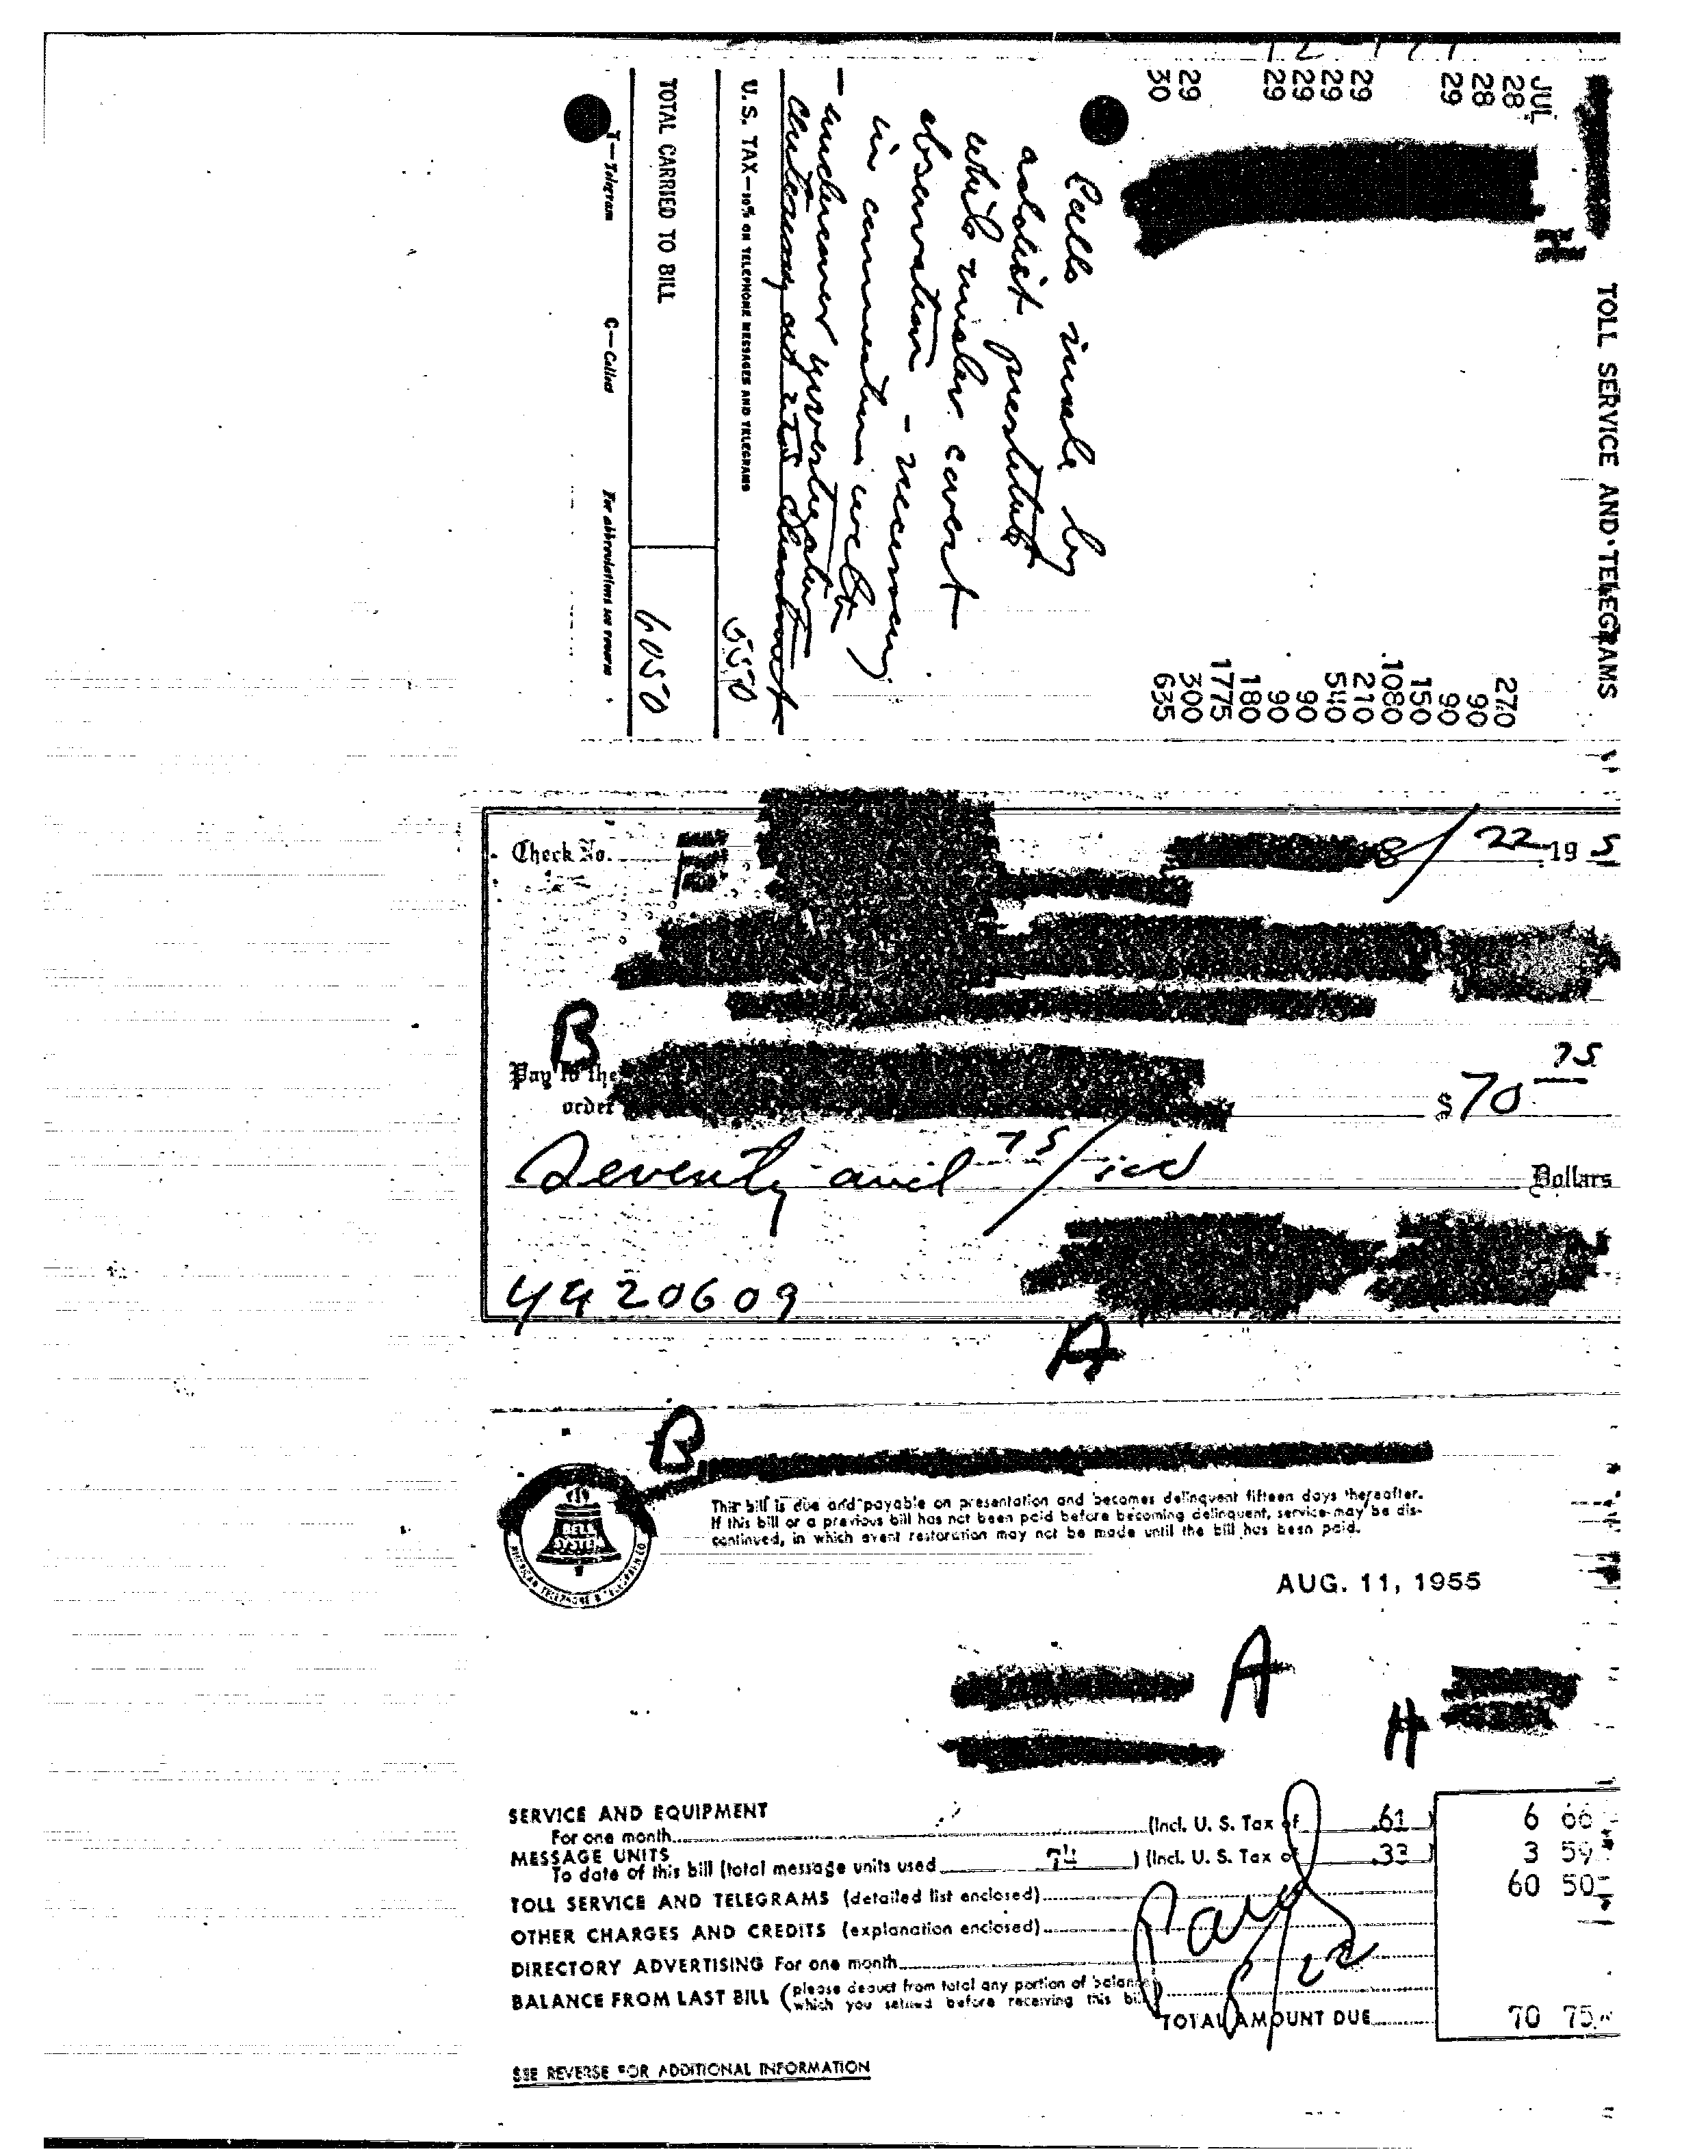 TOLL SERVICE AND TELEGRAMS
JUL
28
28
29
29
29
29
29
29
30
270
90
90
150
1080
210
540
90
90
180
1775
300
635
Calls made by
addict prostitute
while under covert
observation - necessary
in connection with
- undercover investigation
U.S. TAX—10% ON TELEPHONE MESSAGES AND TELEGRAMS 550
TOTAL CARRIED TO BILL 6050
T—Telegram C—Called For abbreviations see reverse
Check No. 8/22 19 5
B
Pay to the
order $70 75
Seventy and 75/100 Dollars
4420609
A
B
BELL SYSTEM
AMERICAN TELEPHONE & TELEGRAPH CO
This bill is due and payable on presentation and becomes delinquent fifteen days thereafter.
If this bill or a previous bill has not been paid before becoming delinquent, service may be dis-
continued, in which event restoration may not be made until the bill has been paid.
AUG. 11, 1955
A
H
SERVICE AND EQUIPMENT
For one month (Incl. U. S. Tax of .61 ) 6 66
MESSAGE UNITS
To date of this bill (total message units used 74 ) (Incl. U. S. Tax of .33 ) 3 59
TOLL SERVICE AND TELEGRAMS (detailed list enclosed) 60 50
OTHER CHARGES AND CREDITS (explanation enclosed)
Paid
8/22
DIRECTORY ADVERTISING For one month
BALANCE FROM LAST BILL (please deduct from total any portion of balance
which you settled before receiving this bill)
TOTAL AMOUNT DUE 70 75
SEE REVERSE FOR ADDITIONAL INFORMATION